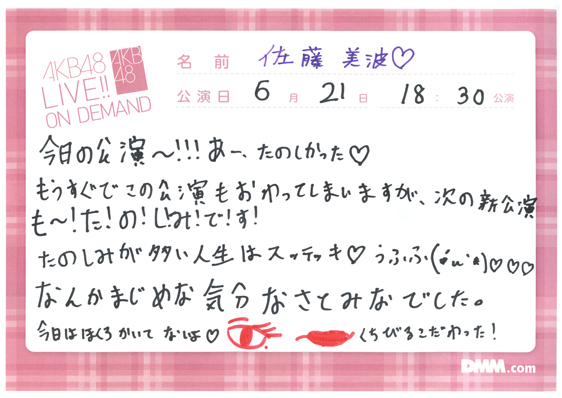 AKB48
LIVE!!
ON DEMAND
AKB
48
名前 佐藤美波♡
公演日 6月21日 18:30公演
今日の公演〜!!!あー、たのしかった♡
もうすぐでこの公演もおわってしまいますが、次の新公演
も〜!た!の!しみ!で!す!
たのしみが多い人生はステッキ♡うふふ(•́ω•̀)♡♡♡
なんかまじめな気分なさとみなでした。
今日はほくろかいてないよ♡ くちびるこだわった!
DMM.com